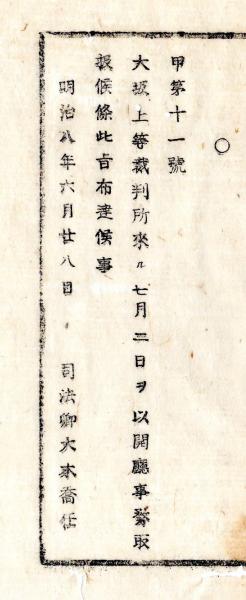 ○
甲第十一號
大坂上等裁判所來ル七月二日ヲ以開廳事務取
扱候條此旨布達候事
明治八年六月廿八日 司法卿大木喬任